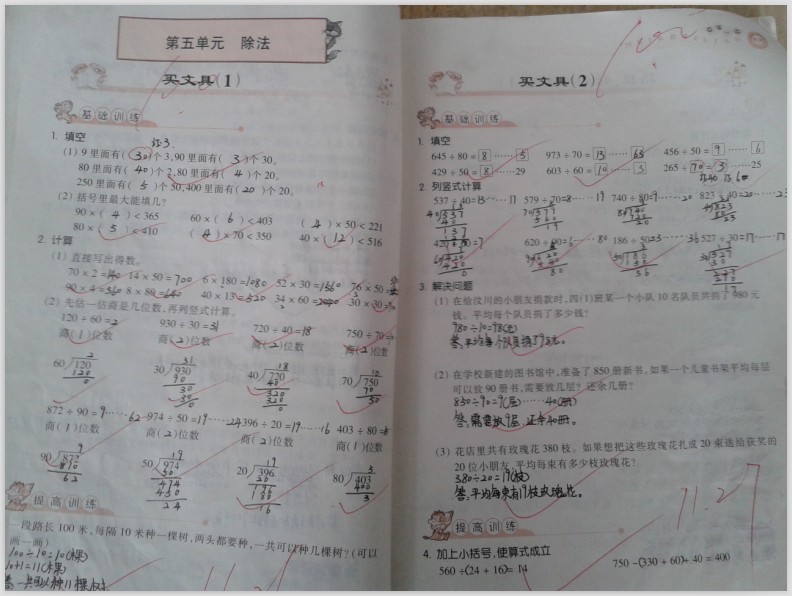 第五单元 除法
买文具(1)
基础训练
1. 填空
(1) 9里面有(30)个3,90里面有(3)个30。
80里面有(40)个2,80里面有(4)个20。
250里面有(5)个50,400里面有(20)个20。
(2) 括号里最大能填几?
90×(4)<365 60×(6)<403 (4)×50<221
80×(5)<410 (4)×70<350 40×(12)<516
2. 计算
(1) 直接写出得数。
70×2=140 14×50=700 6×180=1080 52×30=1560 76×50=
90×4=360 8×80=640 40×13=520 34×60=2040 30×30=
(2) 先估一估商是几位数,再列竖式计算。
120÷60=2 930÷30=31 720÷40=18 750÷70=
商(1)位数 商(2)位数 商(2)位数 商(2)位数
2 31 18 10
60 120 30 930 40 720 70 750
120 90 40 70
0 30 320 50
30 320
0 0
872÷90=9……62 974÷50=19……24 396÷20=19……16 403÷80=
商(1)位数 商(2)位数 商(2)位数 商(1)位数
9 19 19
90 872 50 974 20 396 80 403
810 50 20 400
62 474 196 3
450 180
24 16
提高训练
一段路长100米,每隔10米种一棵树,两头都要种,一共可以种几棵树?(可以
画一画)
100÷10=10(棵)
10+1=11(棵)
答:一共可以种11棵树
买文具(2)
基础训练
1. 填空
645÷80=8……5 973÷70=13……63 456÷50=9……6
429÷50=8……29 603÷60=10……3 265÷70=3……25
2. 列竖式计算
537÷40=13……17 579÷70=8……19 740÷80=9……20 823÷40=20……23
420÷60=7 620÷90=6……80 186÷50=3……36 527÷30=17……17
3. 解决问题
(1) 在给汶川的小朋友捐款时,四(1)班某一个小队10名队员共捐了980元
钱。平均每个队员捐了多少钱?
980÷10=98(元)
答:平均每个队员捐了98元。
(2) 在学校新建的图书馆中,准备了850册新书,如果一个儿童书架平均每层
可以放90册书,需要放几层?还余几册?
850÷90=9(层)……40(册)
答:需要放9层,还余40册。
(3) 花店里共有玫瑰花380枝。如果想把这些玫瑰花扎成20束送给获奖的
20位小朋友,平均每束有多少枝玫瑰花?
380÷20=19(枝)
答:平均每束有19枝玫瑰花。
11.27
提高训练
4. 加上小括号,使算式成立
560÷(24+16)=14 750-(330+60)+40=400